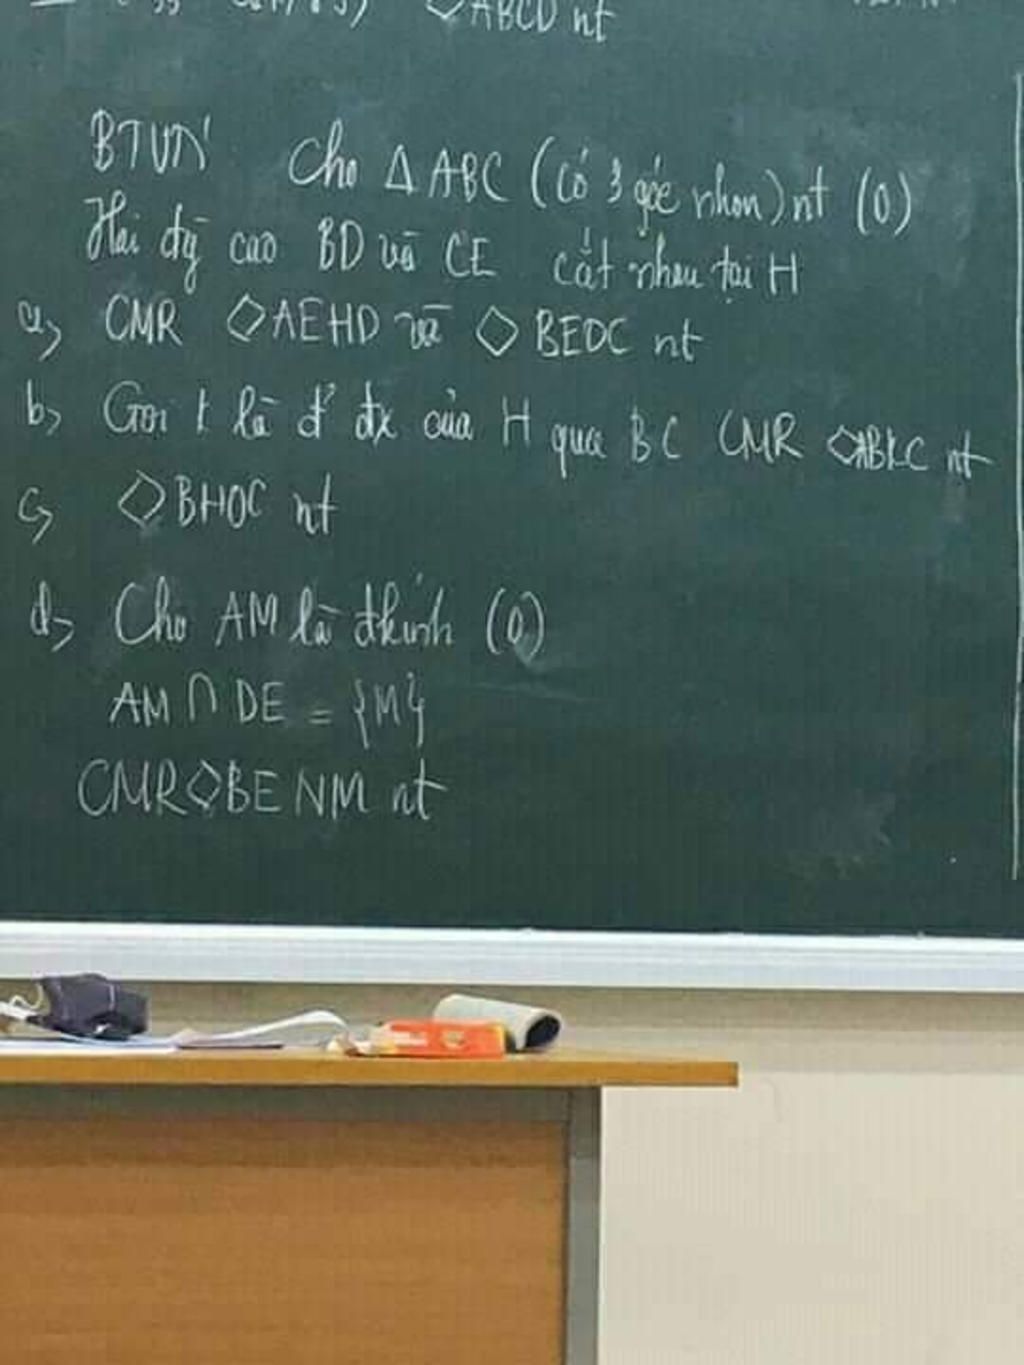 ◇ABCD nt
BTVN Cho Δ ABC (có 3 góc nhọn) nt (O)
Hai đg cao BD và CE cắt nhau tại H
a, CMR ◇AEHD và ◇ BEDC nt
b, Gọi K là đ' đx của H qua BC CMR ◇ABKC nt
c, ◇BHOC nt
d, Cho AM là đkính (O)
AM ∩ DE = {M}
CMR◇BENM nt